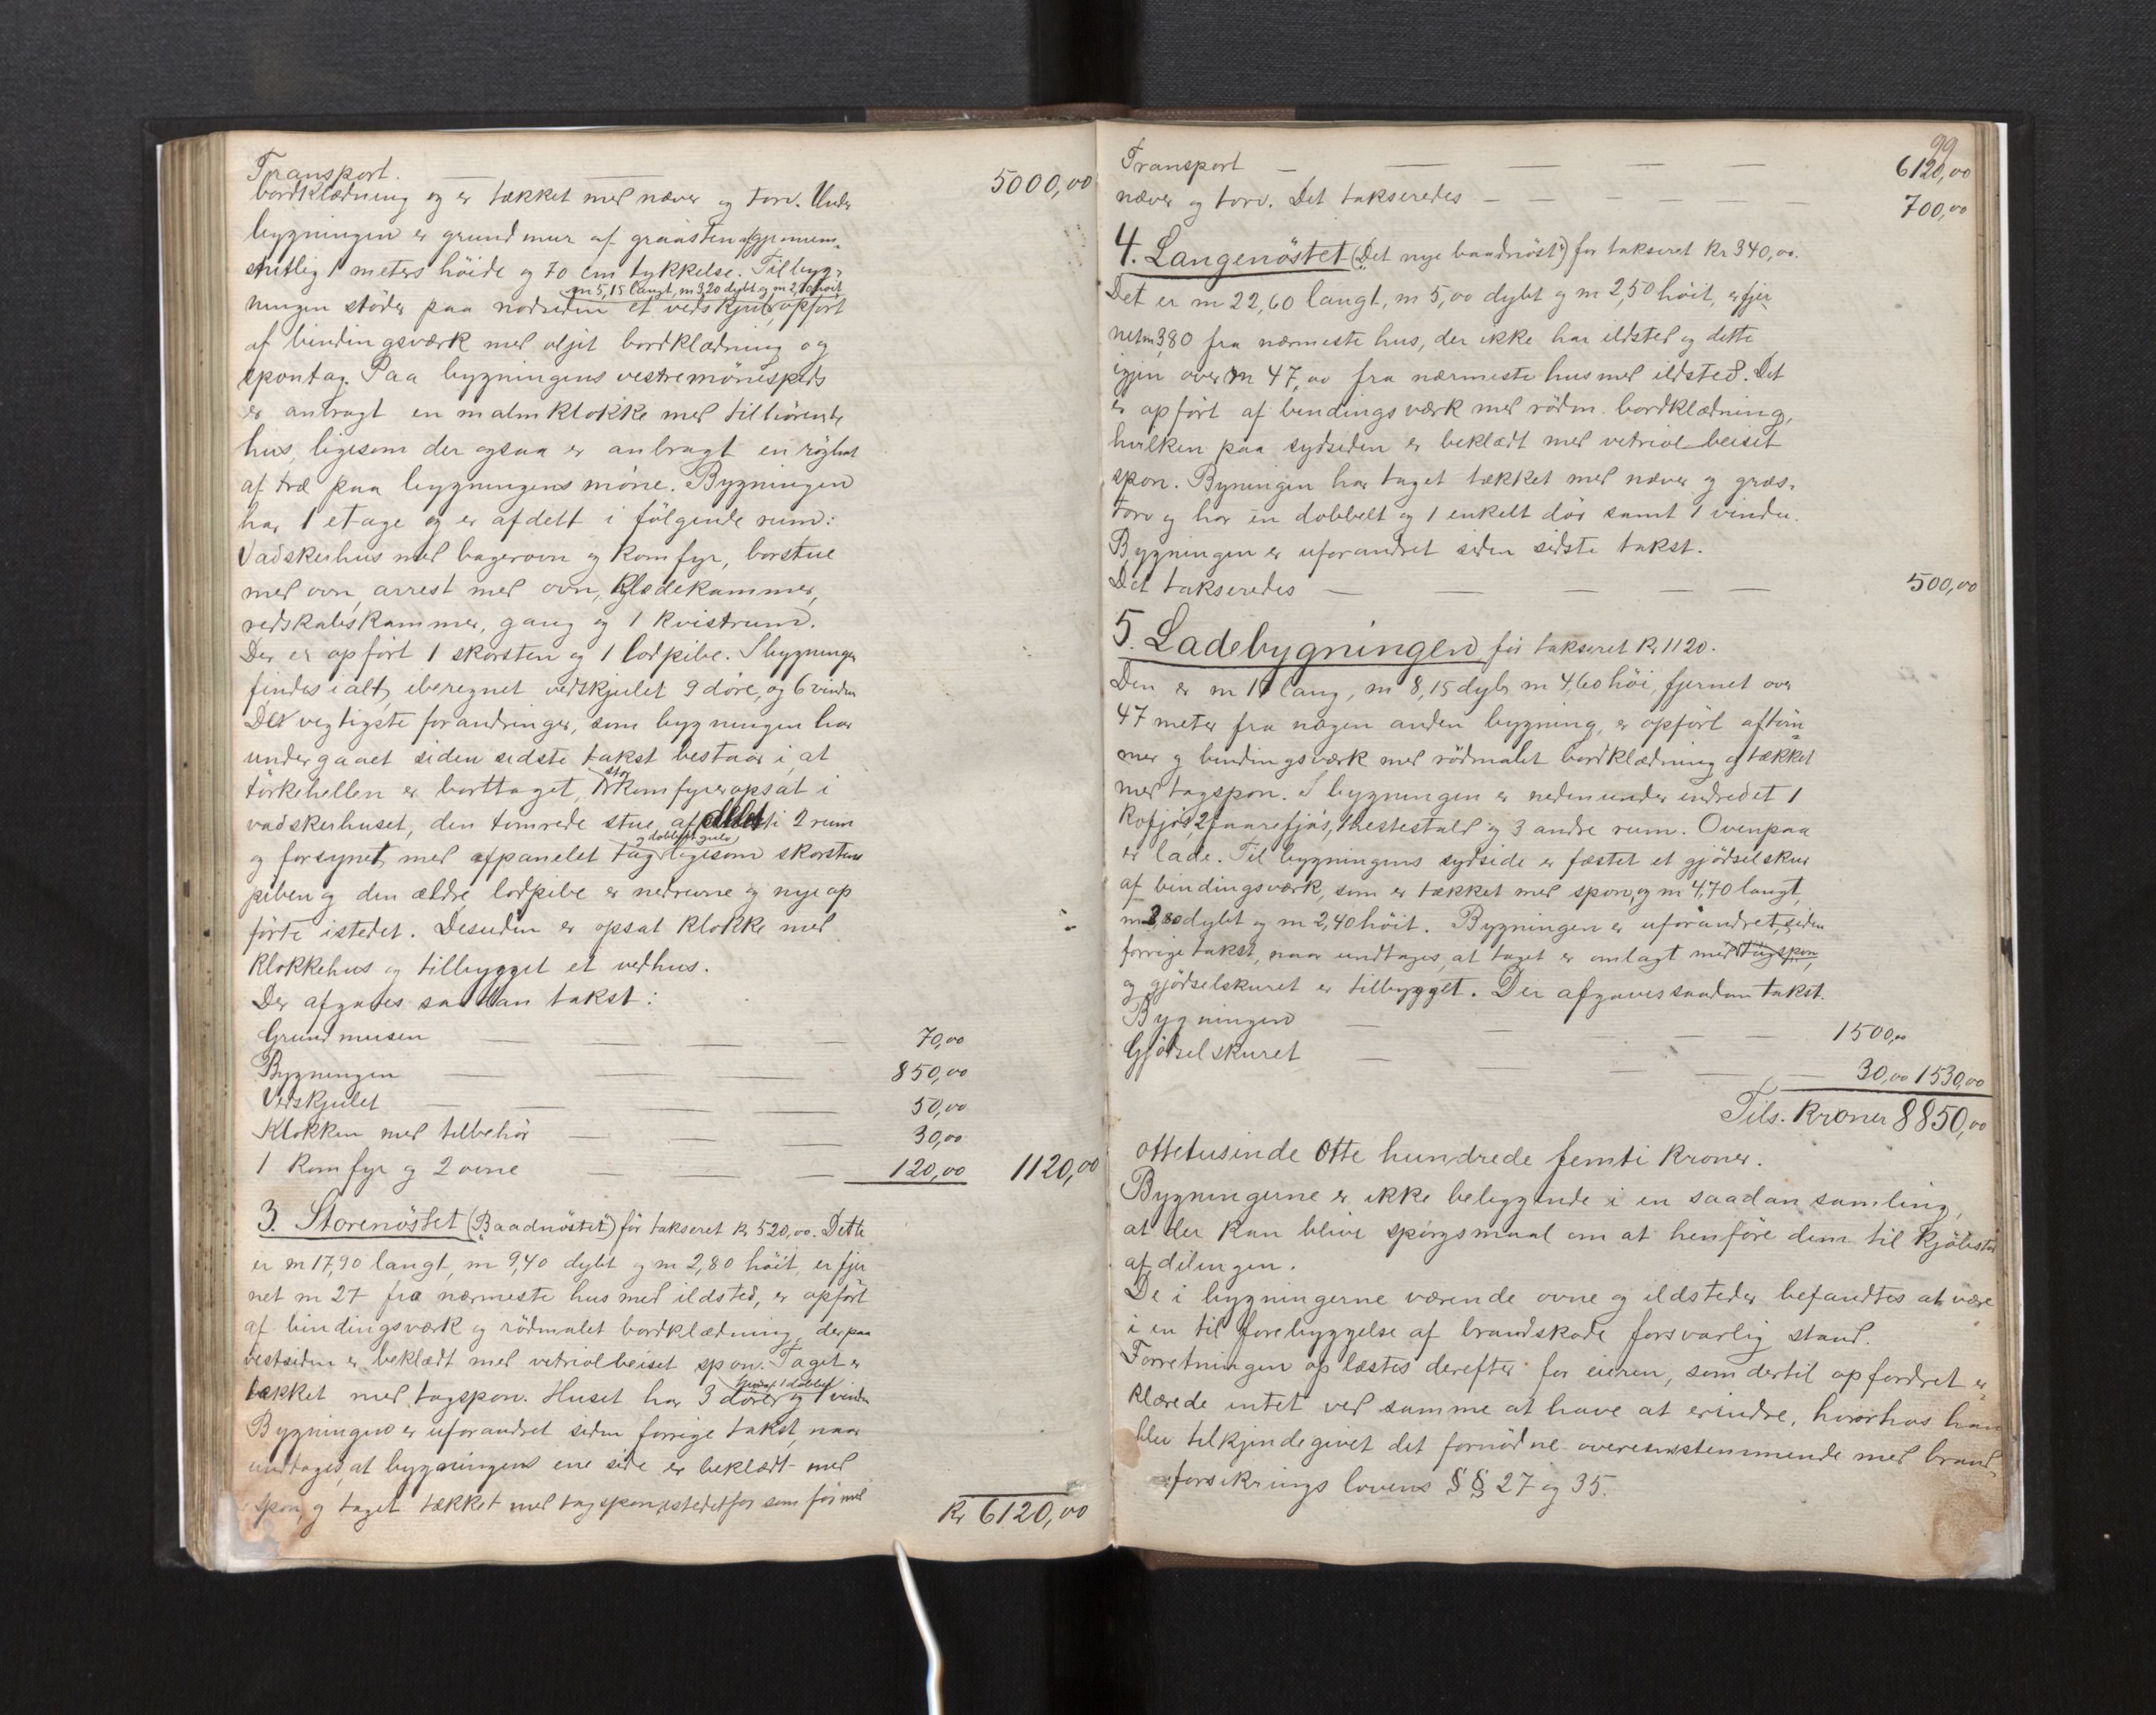 Transport. — — 5000,00
bordklædning og er tækket med næver og torv. Under
bygningen er grundmur af graasten af gjennem-
snitlig 1 meters höide og 70 cm tykkelse. Til byg-
m 5,15 langt, m 3,20 dybt og m 2,10 höit
ningen stöder paa nordsiden et vedskjul, opfört
af bindingsværk med oljet bordklædning og
spontag. Paa bygningens vestre mönespids
er anbragt en malmklokke med tilhörende
hus, ligesom der ogsaa er anbragt en röghat
af træ paa bygningens möne. Bygningen
har 1 etage og er afdelt i fölgende rum:
Vadskerhus med bagerovn og komfyr, borstue
med ovn, arrest med ovn, klædekammer,
redskabskammer, gang og 1 kvistrum.
Der er opfört 1 skorsten og 1 lodpibe. I bygningen
findes ialt, iberegnet vedskjulet 9 döre, og 6 vinduer
De vegtigste forandringer, som bygningen har
undergaaet siden sidste takst bestaar i, at
törkehellen er borttaget, stor komfyr er opsat i
vadskerhuset, den tömrede stue afdelt i 2 rum
og dobbelt gulv
og forsynet med afpanelet tag ligesom skorstens
piben og den ældre lodpibe er nedrevne og nye op
förte istedet. Desuden er opsat klokke med
klokkehus og tilbygget et vedhus.
Der afgaves saadan takst:
Grundmuren — — — — 70,00
Bygningen — — — 850,00
Vedskjulet — — — — 50,00
Klokken med tilbehör — — — 30,00
1 komfyr og 2 ovne — — — 120,00 1120,00
3. Storenöstet („Baadnöstet") för takseret kr 520,00. Dette
er m 17,90 langt, m 9,40 dybt og m 2,80 höit, er fjer
net m 27 fra nærmeste hus med ildsted, er opfört
af bindingsværk og rödmalet bordklædning, der paa
vestsiden er beklædt med vetriolbeiset spon. Taget er
hvoraf 1 dobbel
tækket med tagspon. Huset har 3 dörer og 1 vindu
Bygningen er uforandret siden forrige takst, naar
undtages, at bygningens ene side er beklædt med
spon, og taget tækket med tagspon istedetfor som för med
Kr 6120,00
99
Transport — — — — 6120,00
næver og torv. Det takseredes — — — — — — 700,00
4. Langenöstet („Det nye baadnöst") för takseret kr 340,00.
Det er m 22,60 langt, m 5,00 dybt og m 2,50 höit, er fjer
net m 3,80 fra nærmeste hus, der ikke har ildsted og dette
igjen over m 47,00 fra nærmeste hus med ildsted. Det
er opfört af bindingsværk med rödm. bordklædning,
hvilken paa sydsiden er beklædt med vetriolbeiset
spon. Byningen har taget tækket med næver og græs-
torv og har en dobbelt og 1 enkelt dör samt 1 vindu.
Bygningen er uforandret siden sidste takst.
Det takseredes — — — — — 500,00
5. Ladebygningen för takseret kr 1120.
Den er m 17 lang, m 8,15 dyb, m 4,60 höi, fjernet over
47 meter fra nogen anden bygning, er opfört af töm-
mer og bindingsværk med rödmalet bordklædning og tækket
med tagspon. I bygningen er nedenunder indredet 1
kofjös, 2 faarefjös, 1 hestestald og 3 andre rum. Ovenpaa
er lade. Til bygningens sydside er fæstet et gjödselskur
af bindingsværk, som er tækket med spon, og m 4,70 langt,
m 2,80 dybt og m 2,40 höit. Bygningen er uforandret siden
forrige takst, naar undtages, at taget er omlagt med tagspon
og gjödselskuret er tilbygget. Der afgaves saadan takst.
Bygningen — — — — 1500,00
Gjödselskuret — — — — 30,00 1530,00
Tils. kroner 8850,00
ottetusinde otte hundrede femti kroner.
Bygningerne er ikke beliggende i en saadan samling,
at der kan blive spörgsmaal om at henföre dem til kjöbstad
afdelingen.
De i bygningerne værende ovne og ildsteder befandtes at være
i en til forebyggelse af brandskade forsvarlig stand.
Forretningen oplæstes derefter for eieren, som dertil opfordret er-
klærede intet ved samme at have at erindre, hvorhos han
blev tilkjendegivet det fornödne overensstemmende med brand-
forsikringslovens §§ 27 og 35.